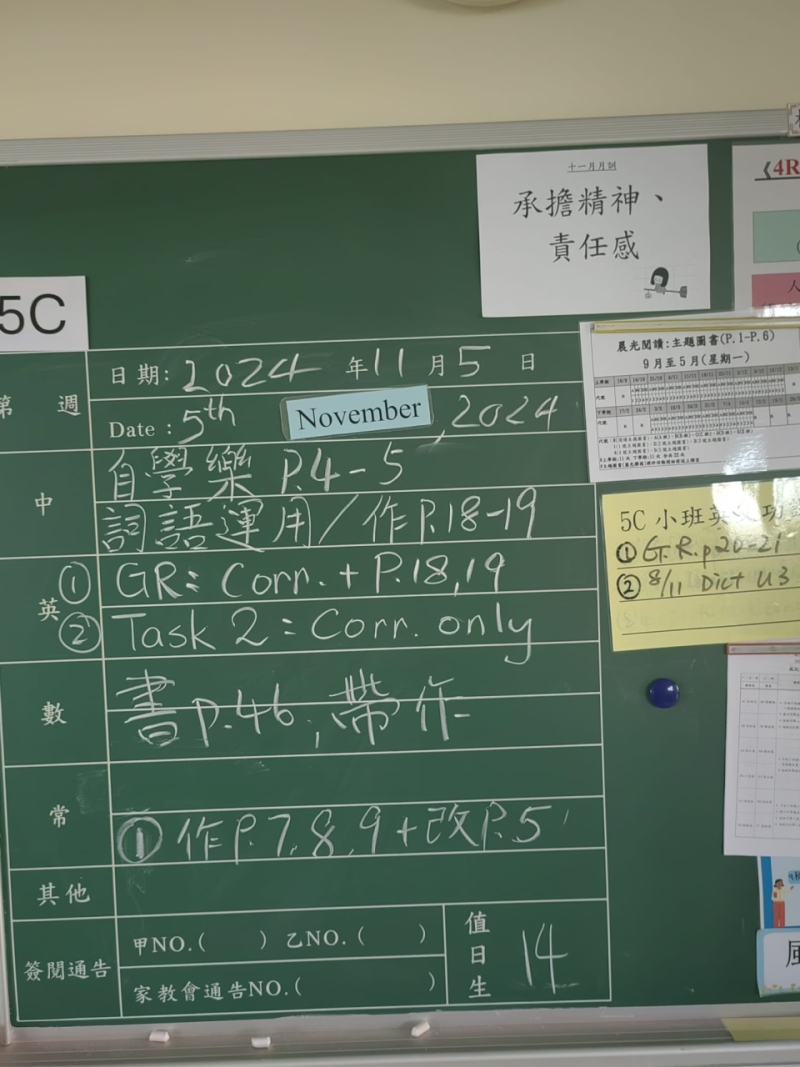 十一月月訓
承擔精神、
責任感
《4R
人
5C
晨光閱讀:主題圖書(P.1-P.6)
9月至5月(星期一)
第 週
日期: 2024 年 11 月 5 日
Date : 5th November, 2024
中
自學樂 P.4-5
詞語運用/作P.18-19
英
① GR: Corr. + P.18,19
② Task 2: Corr. only
5C 小班英文功課
① G.R. p20-21
② 8/11 Dict U3
數
書P.46,帶作
常
① 作P.7,8,9+改P.5
其他
簽閱通告
甲NO.( ) 乙NO.( )
家教會通告NO.( )
值日生
14
風